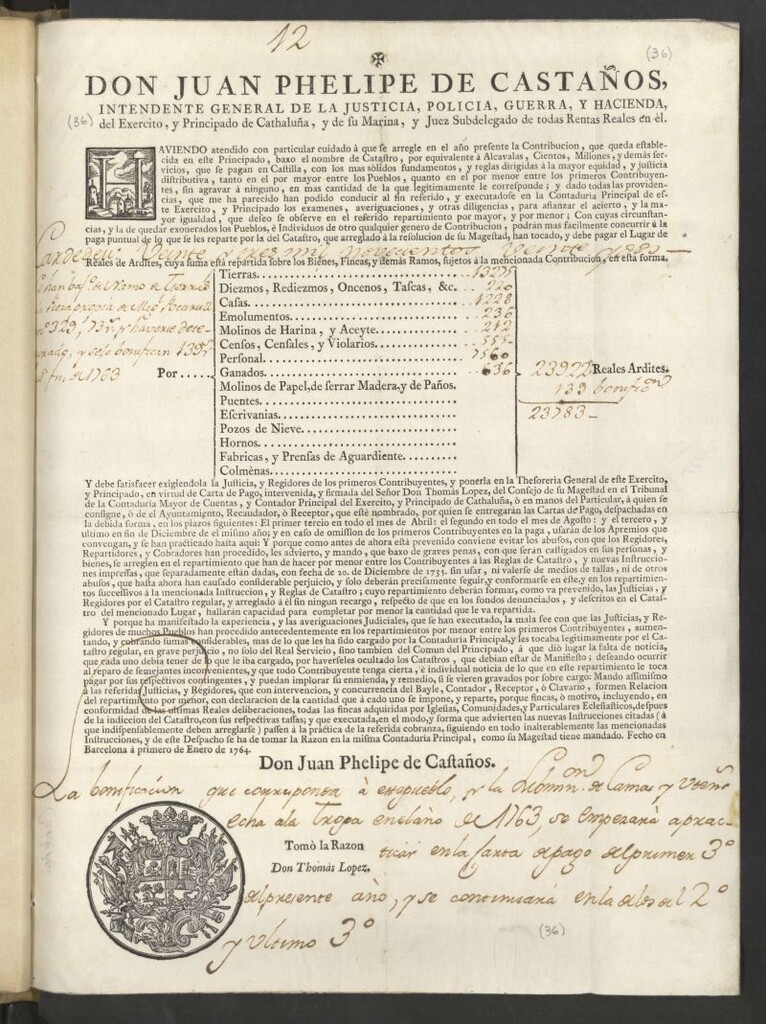 12
(36)
DON JUAN PHELIPE DE CASTAÑOS,
INTENDENTE GENERAL DE LA JUSTICIA, POLICIA, GUERRA, Y HACIENDA,
(36) del Exercito, y Principado de Cathaluña, y de su Marina, y Juez Subdelegado de todas Rentas Reales en èl.
HAVIENDO atendido con particular cuidado à que se arregle en el año presente la Contribucion, que queda estable-
cida en este Principado, baxo el nombre de Catastro, por equivalente à Alcavalas, Cientos, Millones, y demàs ser-
vicios, que se pagan en Castilla, con los mas sòlidos fundamentos, y reglas dirigidas à la mayor equidad, y justicia
distributiva, tanto en el por mayor entre los Pueblos, quanto en el por menor entre los primeros Contribuyen-
tes, sin agravar à ninguno, en mas cantidad de la que legitimamente le corresponde; y dado todas las providen-
cias, que me ha parecido han podido conducir al fin referido, y executadose en la Contaduria Principal de es-
te Exercito, y Principado los examenes, averiguaciones, y otras diligencias, para afianzar el acierto, y la ma-
yor igualdad, que deseo se observe en el referido repartimiento por mayor, y por menor; Con cuyas circunstan-
cias, y la de quedar exonerados los Pueblos, è Individuos de otro qualquier genero de Contribucion, podràn mas facilmente concurrir à la
paga puntual de lo que se les reparte por la del Catastro, que arreglado à la resolucion de su Magestad, han tocado, y debe pagar el Lugar de
Veinte y tres mil novecientos Veinte y dos
Reales de Ardites, cuya suma està repartida sobre los Bienes, Fincas, y demàs Ramos, sujetos à la mencionada Contribucion, en esta forma.
Tierras. 13275
Diezmos, Rediezmos, Oncenos, Tascas, &c. 220
Casas. 1228
Emolumentos. 236
Molinos de Harina, y Aceyte. 212
Censos, Censales, y Violarios. 555
Personal. 7560
Por Ganados. 636 23922 Reales Ardites.
Molinos de Papel, de serrar Madera, y de Paños. 139
Puentes. 23783
Escrivanias.
Pozos de Nieve.
Hornos.
Fabricas, y Prensas de Aguardiente.
Colmènas.
Y debe satisfacer exigiendola la Justicia, y Regidores de los primeros Contribuyentes, y ponerla en la Thesoreria General de este Exercito,
y Principado, en virtud de Carta de Pago, intervenida, y firmada del Señor Don Thomàs Lopez, del Consejo de su Magestad en el Tribunal
de la Contaduria Mayor de Cuentas, y Contador Principal del Exercito, y Principado de Cathaluña, ò en manos del Particular, à quien se
consigne, ò de el Ayuntamiento, Recaudador, ò Receptor, que estè nombrado, por quien se entregaràn las Cartas de Pago, despachadas en
la debida forma, en los plazos siguientes: El primer tercio en todo el mes de Abril: el segundo en todo el mes de Agosto: y el tercero, y
ultimo en fin de Diciembre de el mismo año; y en caso de omission de los primeros Contribuyentes en la paga, usaràn de los Apremios que
convengan, y se han practicado hasta aqui: Y porque como antes de ahora està prevenido conviene evitar los abusos, con que los Regidores,
Repartidores, y Cobradores han procedido, les advierto, y mando, que baxo de graves penas, con que seràn castigados en sus personas, y
bienes, se arreglen en el repartimiento que han de hacer por menor entre los Contribuyentes à las Reglas de Catastro, y nuevas Instruccio-
nes impressas, que separadamente estàn dadas, con fecha de 20. de Diciembre de 1735. sin usar, ni valerse de medios de tallas, ni de otros
abusos, que hasta ahora han causado considerable perjuicio, y solo deberàn precisamente seguir, y conformarse en este, y en los repartimien-
tos successivos à la mencionada Instruccion, y Reglas de Catastro; cuyo repartimiento deberàn formar, como va prevenido, las Justicias, y
Regidores por el Catastro regular, y arreglado à èl sin ningun recargo, respecto de que en los fondos denunciados, y descritos en el Catas-
tro del mencionado Lugar, hallaràn capacidad para completar por menor la cantidad que le va repartida.
Y porque ha manifestado la experiencia, y las averiguaciones Judiciales, que se han executado, la mala fee con que las Justicias, y Re-
gidores de muchos Pueblos han procedido antecedentemente en los repartimientos por menor entre los primeros Contribuyentes, aumen-
tando, y cobrando sumas considerables, mas de lo que les ha sido cargado por la Contaduria Principal, y les tocaba legitimamente por el Ca-
tastro regular, en grave perjuicio, no solo del Real Servicio, sino tambien del Comun del Principado, à que diò lugar la falta de noticia,
que cada uno debia tener de lo que le iba cargado, por haverseles ocultado los Catastros, que debian estar de Manifiesto; deseando ocurrir
al reparo de semejantes inconvenientes, y que todo Contribuyente tenga cierta, è individual noticia de lo que en este repartimiento le toca
pagar por sus respectivos contingentes, y puedan implorar su enmienda, y remedio, si se vieren gravados por sobre cargo: Mando assimismo
à las referidas Justicias, y Regidores, que con intervencion, y concurrencia del Bayle, Contador, Receptor, ò Clavario, formen Relacion
del repartimiento por menor, con declaracion de la cantidad que à cada uno se impone, y reparte, porque fincas, ò motivo, incluyendo, en
conformidad de las ultimas Reales deliberaciones, todas las fincas adquiridas por Iglesias, Comunidades, y Particulares Eclesiasticos, despues
de la indiccion del Catastro, con sus respectivas tassas; y que executada, en el modo, y forma que advierten las nuevas Instrucciones citadas (à
que indispensablemente deben arreglarse) passen à la pràctica de la referida cobranza, siguiendo en todo inalterablemente las mencionadas
Instrucciones, y de este Despacho se ha de tomar la Razon en la misma Contaduria Principal, como su Magestad tiene mandado. Fecho en
Barcelona à primero de Enero de 1764.
Don Juan Phelipe de Castaños.
La bonificacion que corresponda à este pueblo, y la de Camas y
echa ala Tropa en el año de 1763, se empezarà aprac-
Tomò la Razon ticar en la Carta de pago del primer 3º
Don Thomàs Lopez. del presente año, y se continuarà en la de los del 2º
y Ultimo 3º
(36)